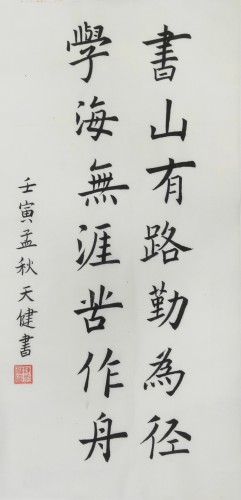 書山有路勤為径
學海無涯苦作舟
壬寅孟秋天健書